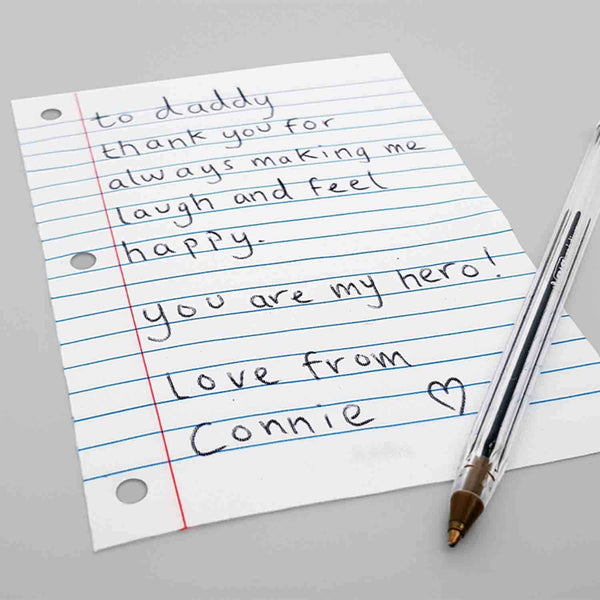 to daddy
thank you for
always making me
laugh and feel
happy.
you are my hero!
Love from
Connie ♡